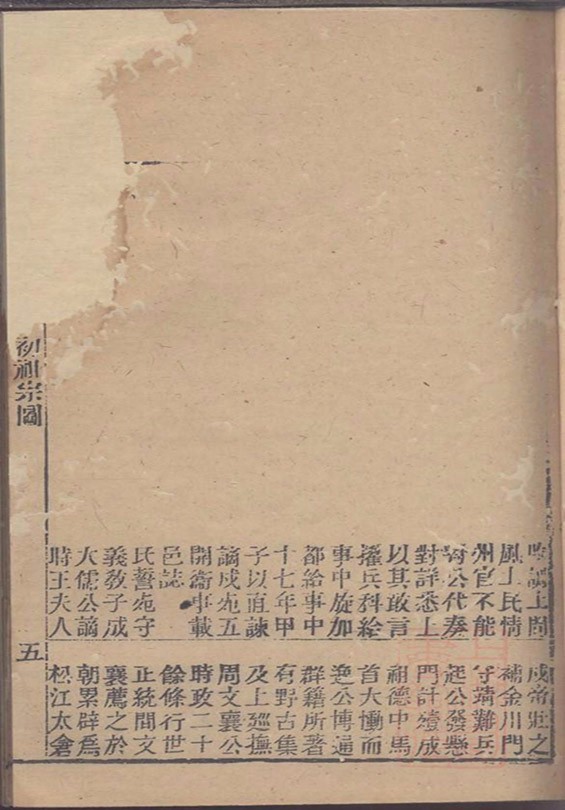 謁上問
風土民情
州官不能
對公代奏
對詳悉上
以其敢言
擢兵科給
事中旋加
都給事中
十七年甲
子以直諫
謫戍死五
開衛事載
邑誌
民誓死守
義敎子成
大儒公謫
時王夫人
成帝壯之
補金川門
守靖難兵
起公發懸
門計殪成
祖中馬
首大慟而
逸公博通
群籍所著
有野古集
及上廵撫
周文襄公
時政二十
餘條行世
正統間文
襄薦之於
朝累辟爲
松江太倉
初祖宗圖
五